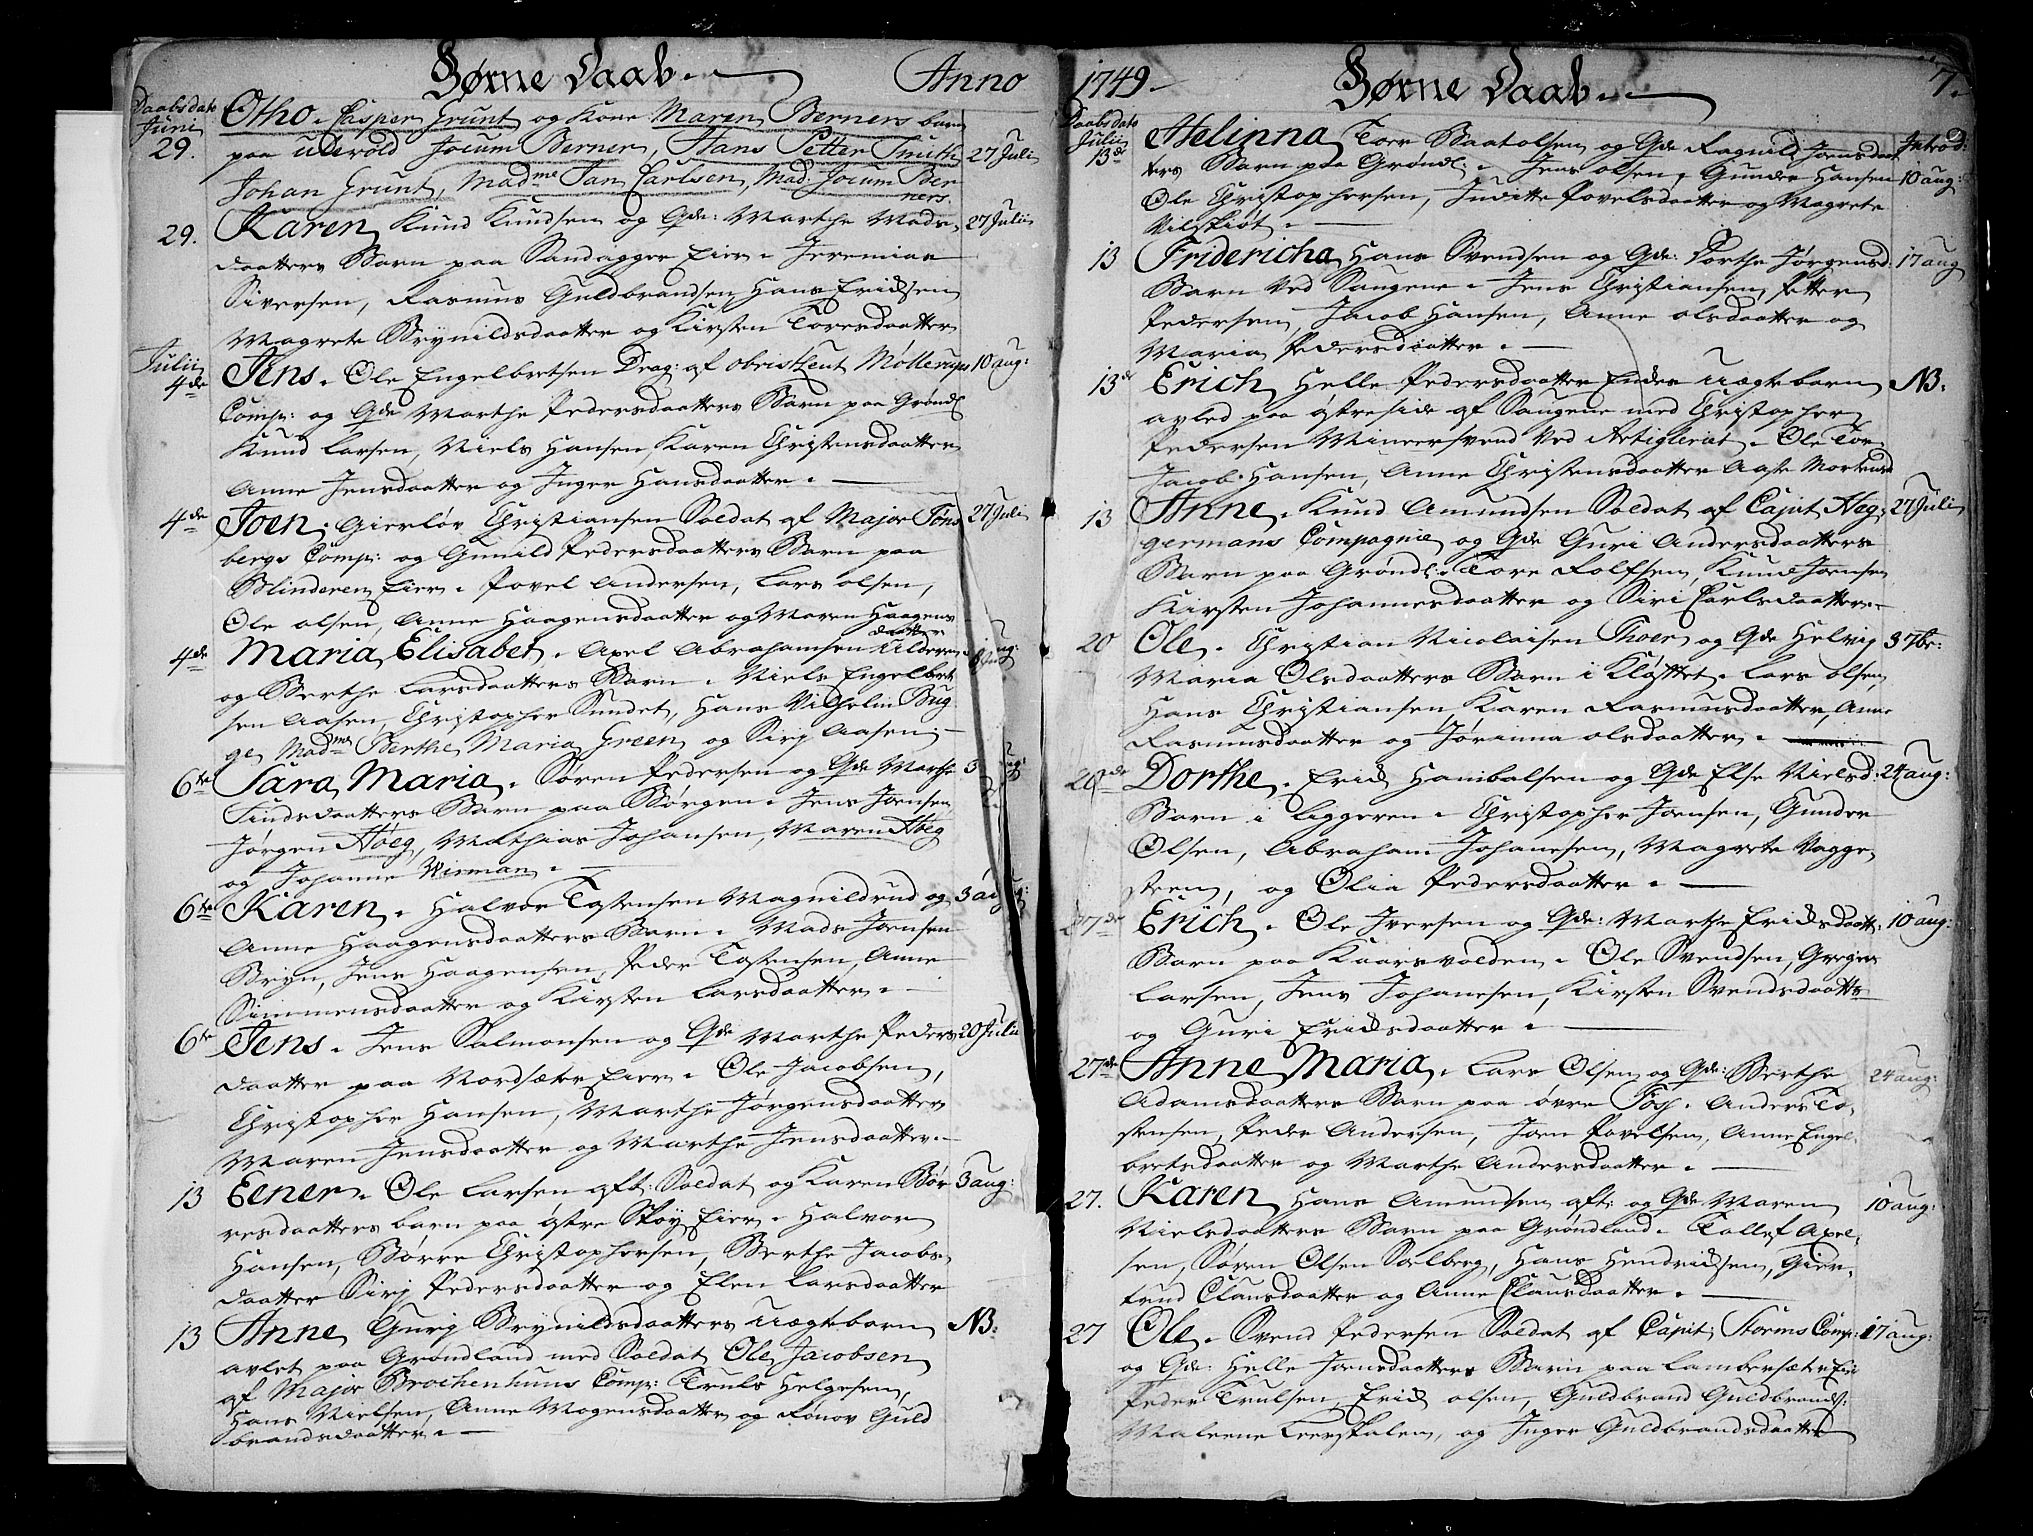 Børne Daab. Anno
Daabs dato
Juni
29.
Otho. Casper Grunt og Kone Maren Berners barn
paa Ulevold Jocum Berner, Hans Petter Smith
27 Juli
Johan Grunt, Mad.me Jan Carlsen, Mad: Jocum Ber
ners.
29.
Karen Knud Knudsen og Qde: Marthe Mads,
27 Julii
daatters Barn paa Sandagger Eier. Jeremias
Siversen, Rasmus Guldbrandsen, Hans Erichsen
Magrete Brynildsdaatter og Kirsten Toresdaatter
Julii
4de
Jens. Ole Engelbretsen Drag: af obristLeut Møllerups
10 aug:
Comp: og Qde Marthe Pedersdaatters Barn paa Grøndl
Knud Larsen, Niels Hansen, Karen Christensdaatter
Anne Jensdaatter og Inger Hansdaatter.
4de
Joen. Gierløv Christiansen Soldat af Major Tøns
27 Juli
bergs Comp: og Gunild Pedersdaatters Barn paa
Blinderen Eier. Povel Andersen, Lars olsen,
Ole olsen, Anne Haagensdaatter og Maren Haagens
daatter
4de
Maria Elisabet. Axel Abrahamsen
og Berthe Larsdaatters Barn. Niels Engelbret
sen Aasen, Christopher Sundet, Hans Vilhelm Bug
ge, Mad.me Berthe Maria Green og Sirj Aasen
6te
Sara Maria. Søren Pedersen og Qde Marthe
3
daatters Barn paa Børgen. Jens Joensen
Jørgen Høeg, Mathias Johansen, Maren Høeg
og Johanne Wirman.
6te
Karen. Halvor Tostensen Magnildrud og
3 aug
Anne Haagensdaatters Barn. Mads Joensen
Bryn, Jens Haagensen, Peder Tostensen, Anne
Simmensdaatter og Kirsten Larsdaatter.
6te
Jens. Jens Salmonsen og Qde Marthe Peders
20 Julii
daatter paa Nordsæter Eier. Ole Jacobsen,
Christopher Hansen, Marthe Jørgensdaatter
Maren Jensdaatter og Marthe Jensdaatter.
13
Eener. Ole Larsen aft: Soldat og Karen Bør
3 aug:
resdaatters barn paa østre Skøy Eier. Halvor
Hansen, Børre Christophersen, Berthe Jacobs,
daatter Sirj Pedersdaatter og Elen Larsdaatter
13
Anne Gurj Brynildsdaatters Uægte barn
NB:
avlet paa Grøndland med Soldat Ole Jacobsen
af Major Brochenhuus Comp: Truls Helgesen,
Hans Nielsen, Anne Mogensdaatter og Rønov Guld
brandsdaatter.
1749. Børne Daab.
7.
Daabs dato
Julii
13de
Introd:
Helinna Tore Baatolsen og Qde Ragnild Joensdaat
ters Barn paa Grøndl: Jens olsen, Gunder Hansen
10 aug:
Ole Christophersen, Juditte Povelsdaatter og Magrete
Vilskiøt.
13
Fridericha Hans Svendsen og Qde: Dorthe Jørgensd:
17 aug
Barn Ved Saugene. Jens Christiansen, Petter
Pedersen, Jacob Hansen, Anne olsdaatter og
Maria Pedersdaatter.
13de
Erich Helle Pedersdaatter Uægte barn
NB:
avled paa østre side af Saugene med Christopher
Pedersen Minersvend Ved Artigleriet. Ole Tor.
Jacob Hansen, Anne Christensdaatter Aase Mortensd
13
Anne. Knud Amundsen Soldat af Capit Heg,
27 Juli
germans Compagnie og Qde Guri Andersdaatters
Barn paa Grøndl: Tore Rolfsen, Knud Joensen
Kirsten Johannesdaatter og Siri Carlsdaatter.
20
Ole. Christian Nicolaisen Thoer og Qde Helvig
3 7br:
Maria Olsdaatters Barn i Kløfttet. Lars olsen,
Hans Christiansen, Karen Rasmusdaatter, Anne
Rasmusdaatter og Jøranna olsdaatter.
20de
Dorthe. Erich Hambolsen og Qde Else Nielsd:
24 aug:
Barn i Liggeren. Christopher Joensen, Gunder
Olsen, Abraham Johanesen, Magrete Vagge,
steen, og Olia Pedersdaatter.
27de
Erich. Ole Iversen og Qde: Marthe Erichsdaatt.
10 aug:
Barn paa Kaarsvolden. Ole Svendsen, Gregers
Larsen, Jens Johanesen, Kirsten Svendsdaatter
og Guri Erichsdaatter.
27de
Anne Maria. Lars Olsen og Qde: Berthe
24 aug:
Adamsdaatters Barn paa øvre Foss. Anders To,
stensen, Peder Andersen, Joen Povelsen, Anne Engel,
bretsdaatter og Marthe Andersdaatter.
27.
Karen Hans Amundsen aft: og Qde Maren
10 aug:
Nielsdaatters Barn paa Grøndland. Tollef Axel,
sen, Søren Olsen Solberg, Hans Hendrichsen, Gier,
trud Clausdaatter og Anne Clausdaatter.
27
Ole. Svend Pedersen Soldat af Capit: Storms Comp:
17 aug:
og Qde: Helle Joensdaatters Barn paa Lambersæter Eie
Peder Trulsen, Erich olsen, Guldbrand Guldbrands:
Maleene Leerskalen, og Inger Guldbrandsdaatter